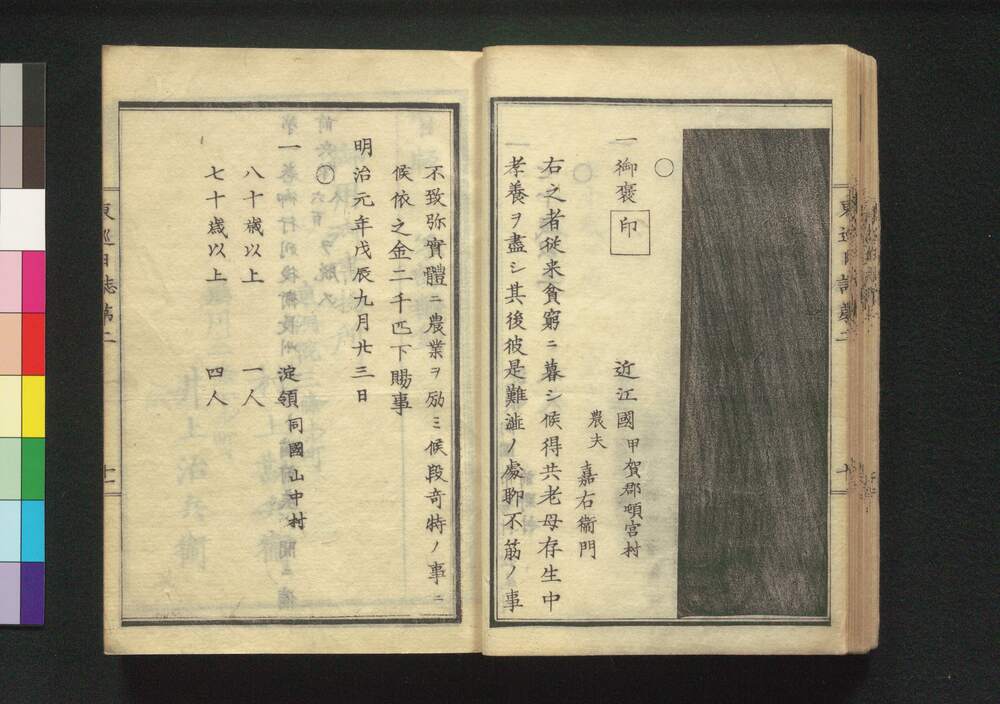 〇
一御褒印
近江國甲賀郡頓宮村
農夫 嘉右衞門
右之者従来貧窮ニ暮シ候得共老母存生中
孝養ヲ盡シ其後彼是難澁ノ處聊不筋ノ事
不致弥實體ニ農業ヲ励ミ候段奇特ノ事ニ
候依之金二千疋下賜事
明治元年戊辰九月廿三日
〇
一 淀領同國山中村
八十歳以上 一人
七十歳以上 四人
東巡日誌第二
十一